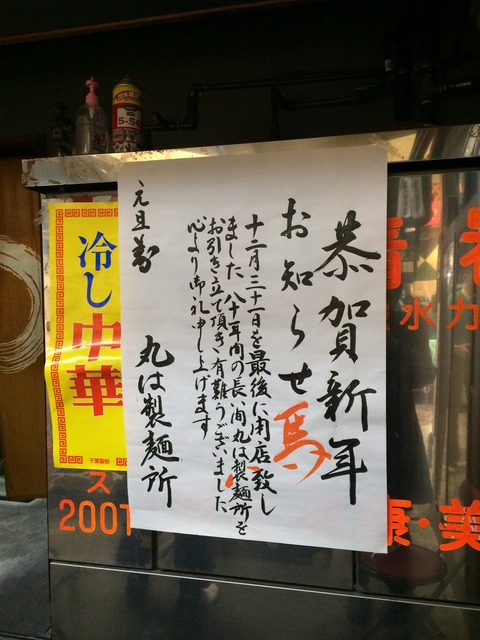 恭賀新年
お知らせ
馬
十二月三十一日を最後に閉店致し
ました 八十年間の長い間丸は製麺所を
お引き立て頂き有難うございました
心より御礼申し上げます
元旦
丸は製麺所
冷し中華
千葉製粉
5-56
ス
2001
水力
康・美